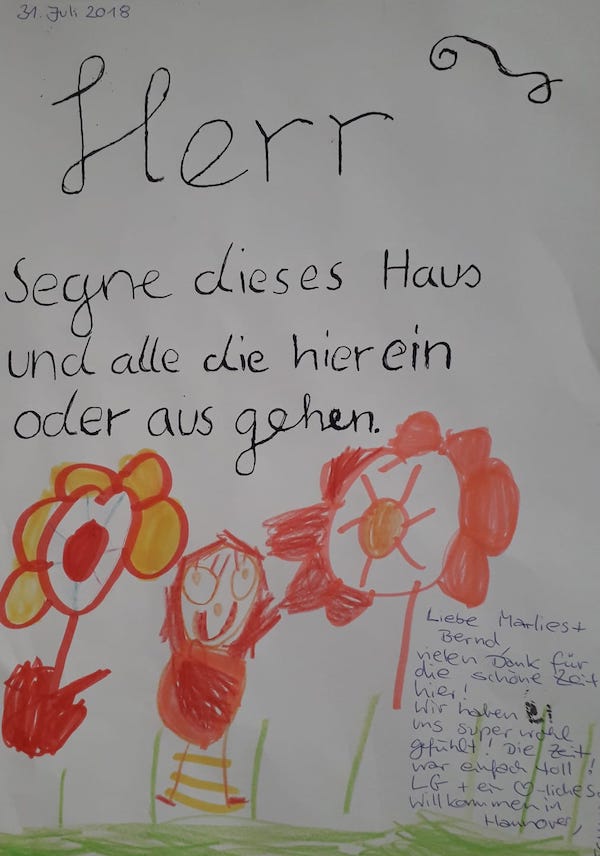 31. Juli 2018
Herr
Segne dieses Haus
und alle die hier ein
oder aus gehen.
Liebe Marlies+
Bernd,
vielen Dank für
die schöne Zeit
hier!
Wir haben
uns super wohl
gefühlt! Die Zeit
war einfach toll!
LG + ein ♡-liches
Willkommen in
Hannover,